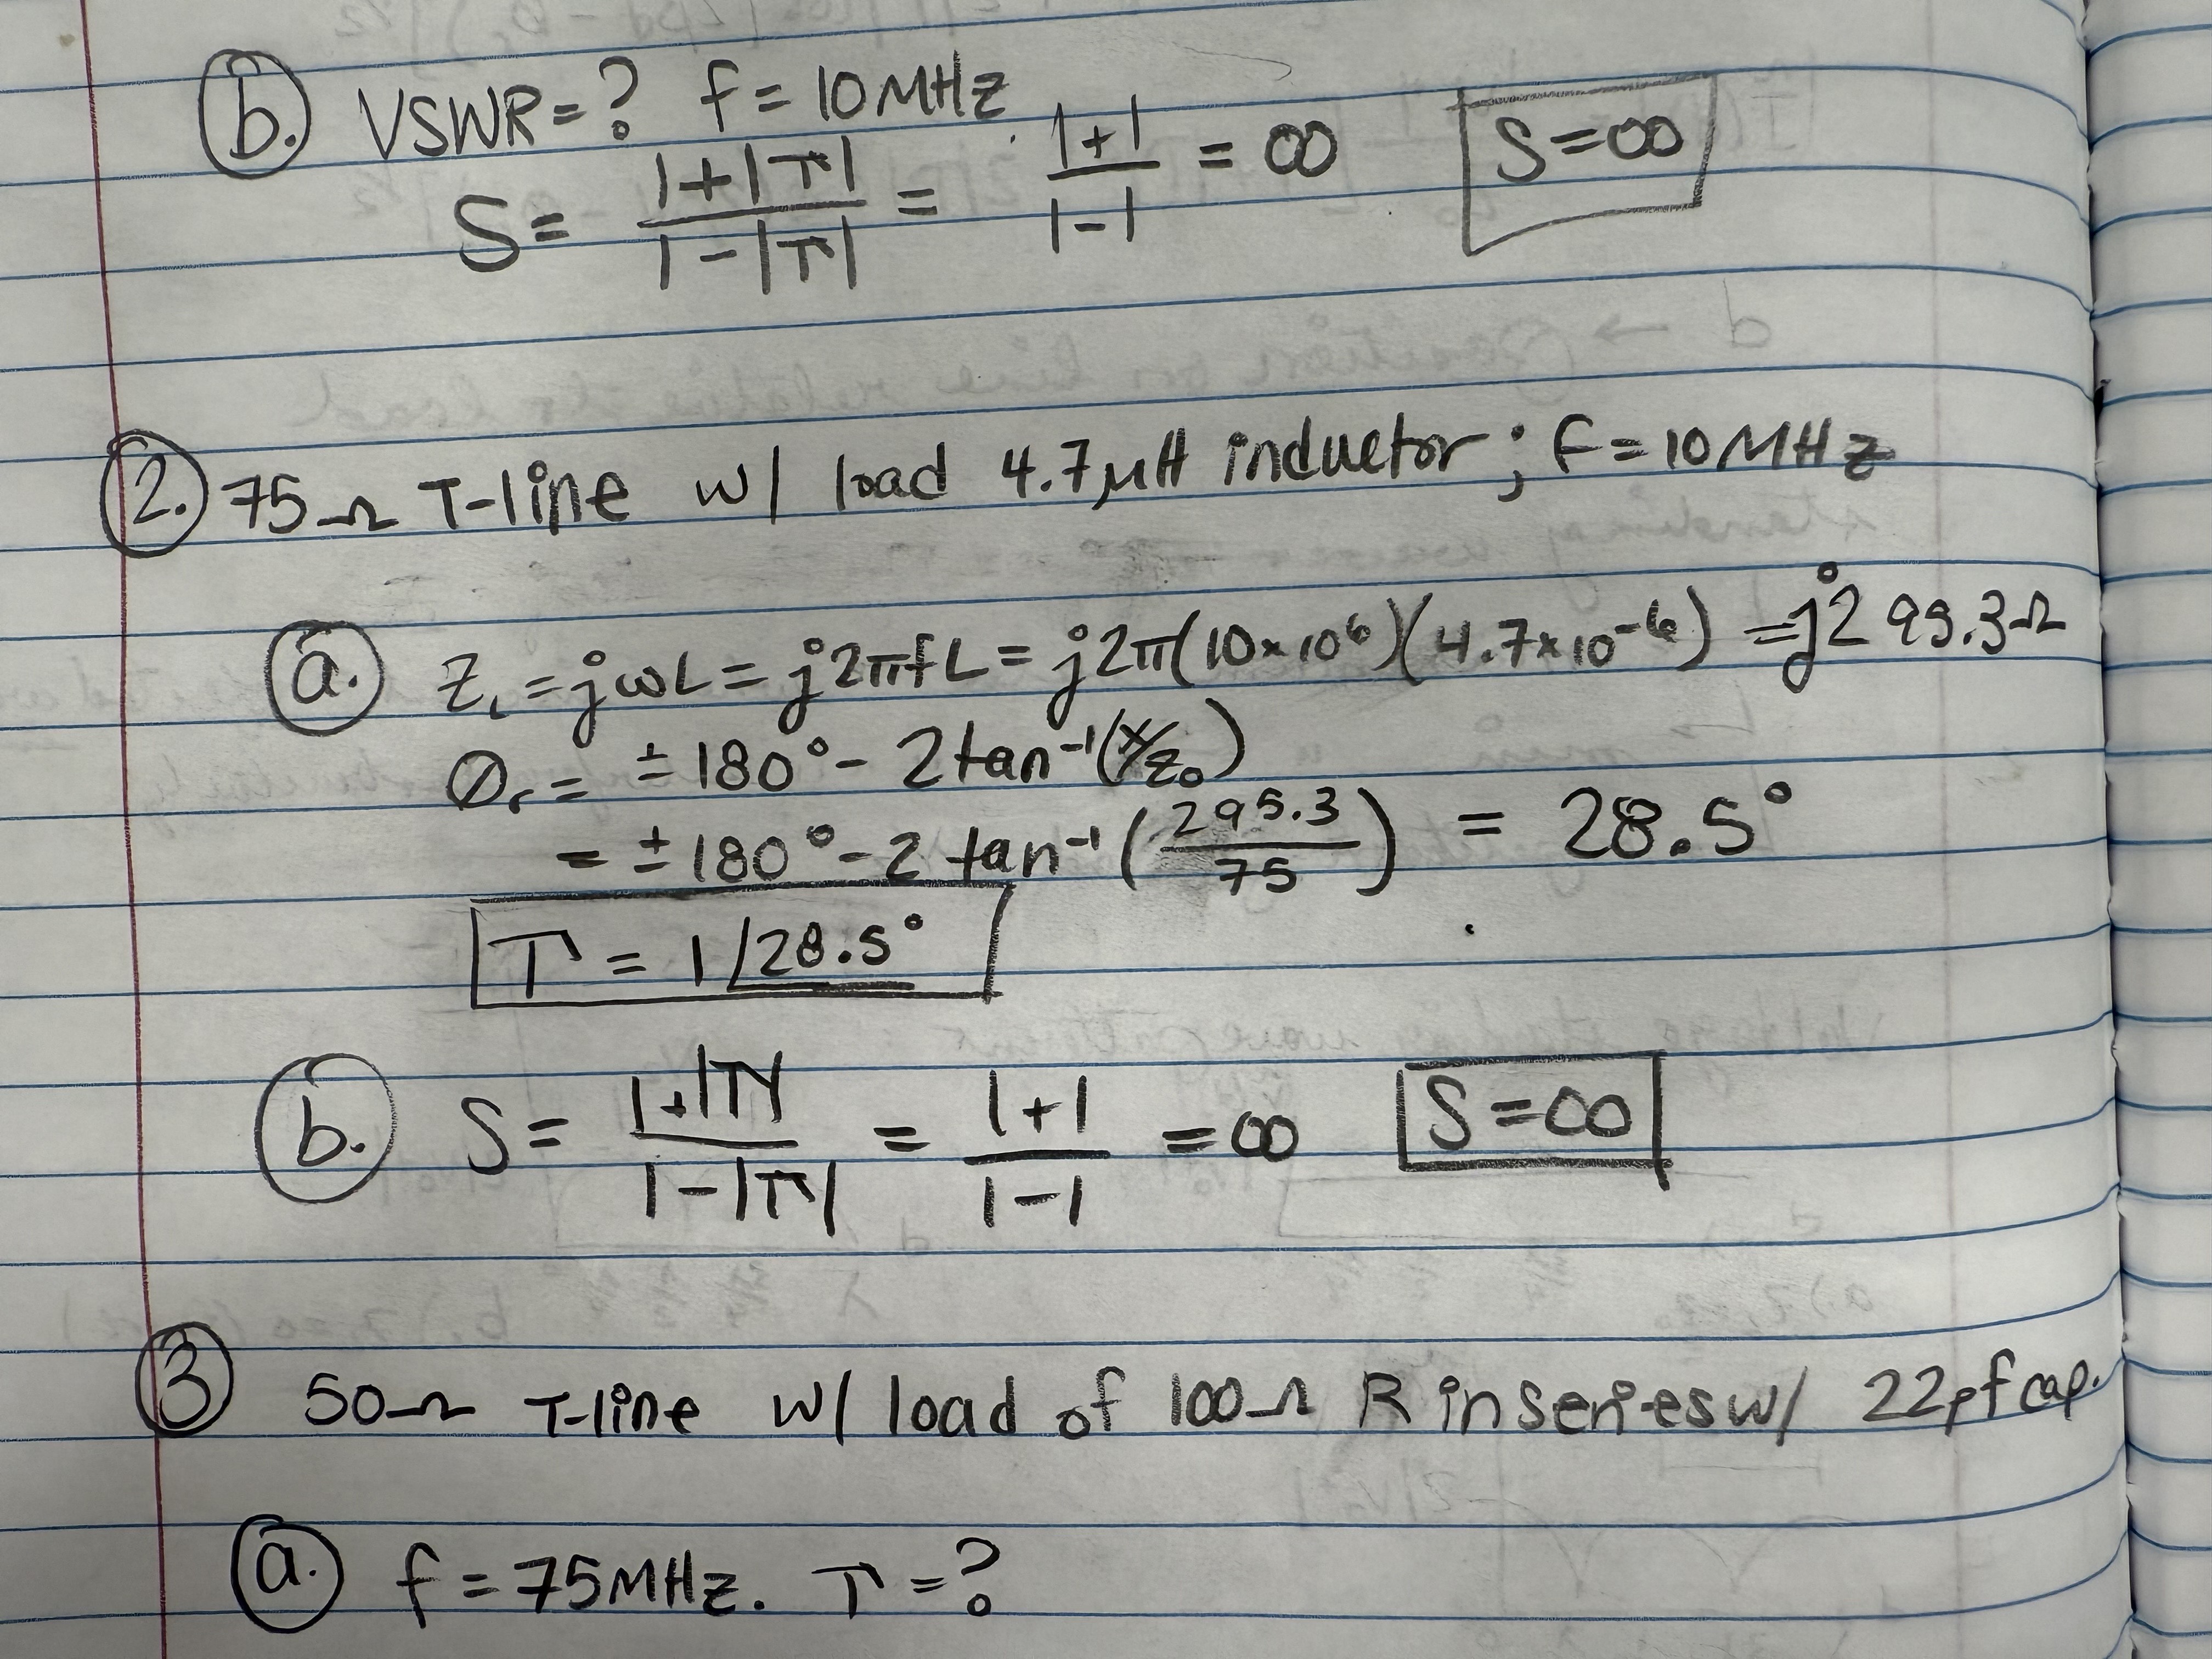 b. VSWR=? f=10MHz
S= 1+|Γ| / 1-|Γ| = 1+1 / 1-1 = ∞ S=∞
2. 75Ω T-line w/ load 4.7μH inductor; f=10MHz
a. Z_L=jωL=j2πfL=j2π(10×10⁶)(4.7×10⁻⁶)=j299.3Ω
θr= ±180°-2tan⁻¹(X/Z₀)
=±180°-2tan⁻¹(295.3/75) = 28.5°
Γ=1∠28.5°
b. S= 1+|Γ| / 1-|Γ| = 1+1 / 1-1 =∞ S=∞
3 50Ω T-line w/ load of 100Ω R in series w/ 22pf cap.
a. f=75MHz. Γ=?